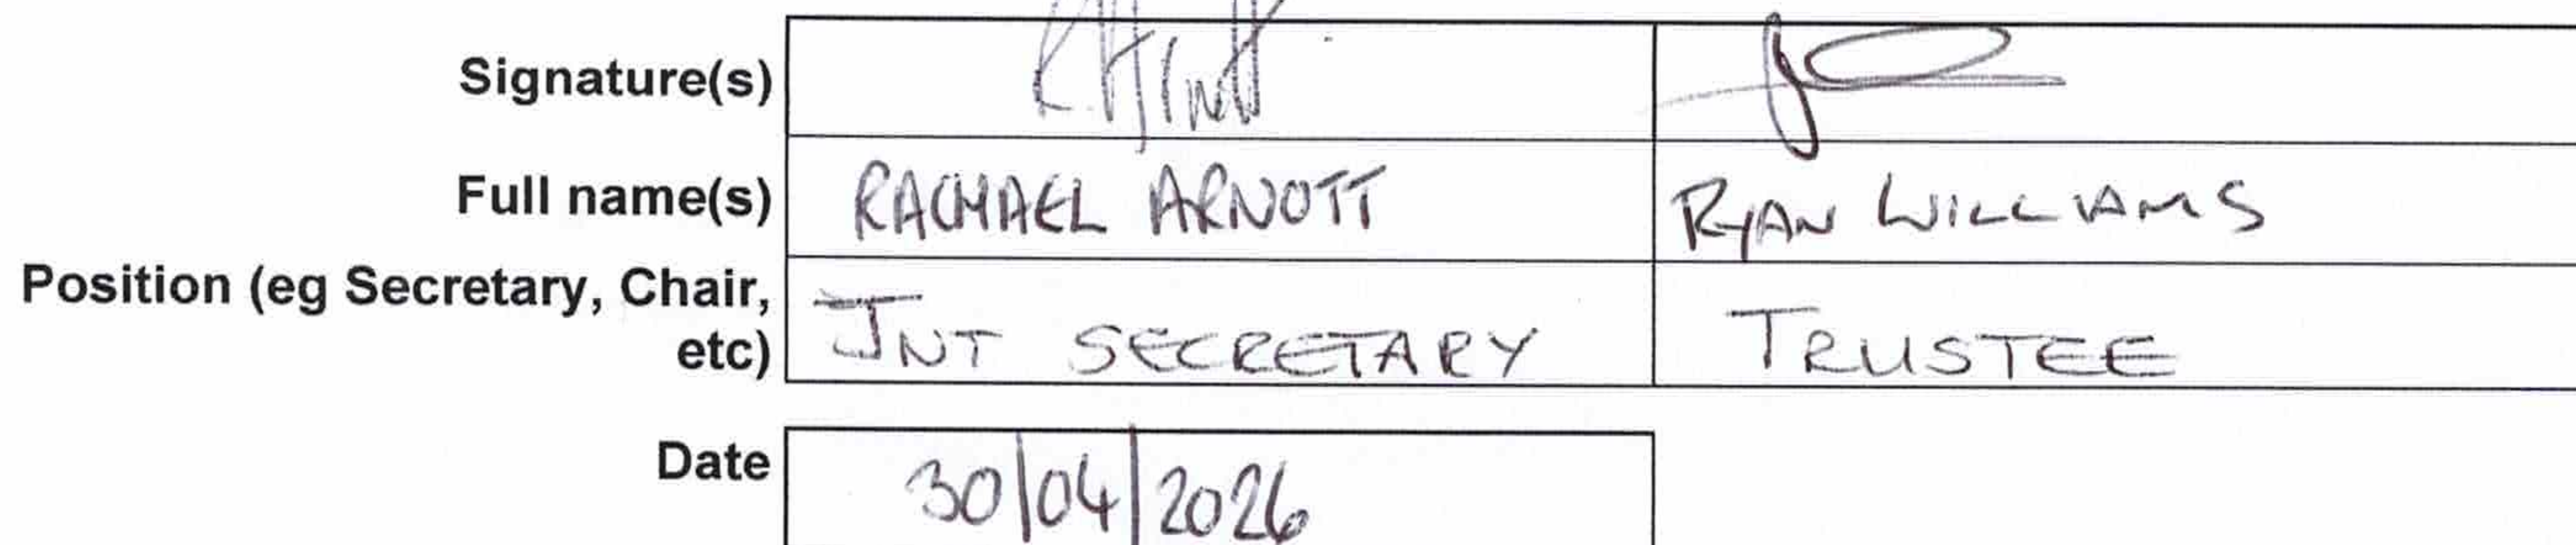 Signature(s)
Full name(s) RACHAEL ARNOTT RYAN WILLIAMS
Position (eg Secretary, Chair,
etc) JNT SECRETARY TRUSTEE
Date 30/04/2026